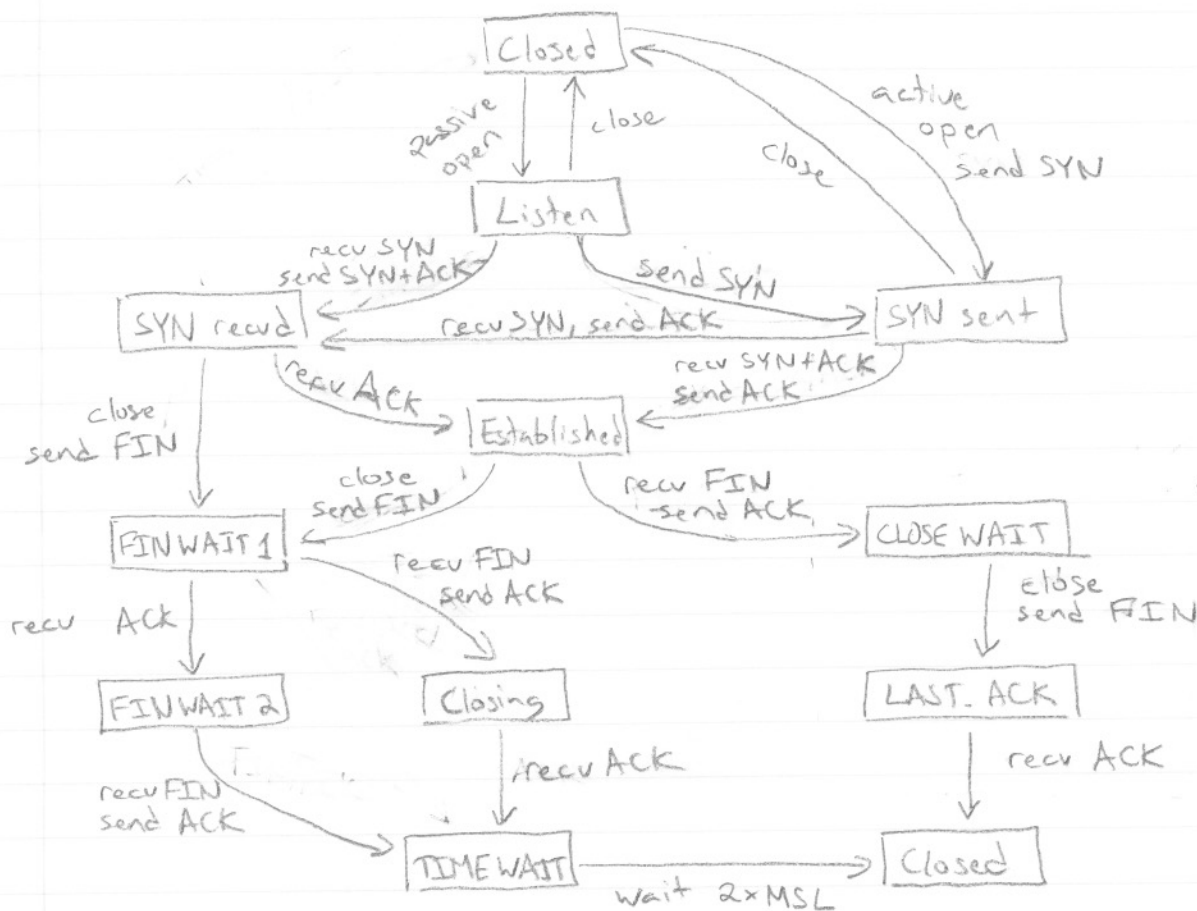 Closed
passive
open
close
active
open
send SYN
close
Listen
recv SYN
send SYN+ACK
send SYN
SYN recvd
recv SYN, send ACK
SYN sent
recv ACK
recv SYN+ACK
send ACK
close,
send FIN
Established
close
send FIN
recv FIN
send ACK
FIN WAIT 1
CLOSE WAIT
recv FIN
send ACK
close
send FIN
recv ACK
FIN WAIT 2
Closing
LAST_ACK
recv FIN
send ACK
recv ACK
recv ACK
TIME WAIT
wait 2xMSL
Closed